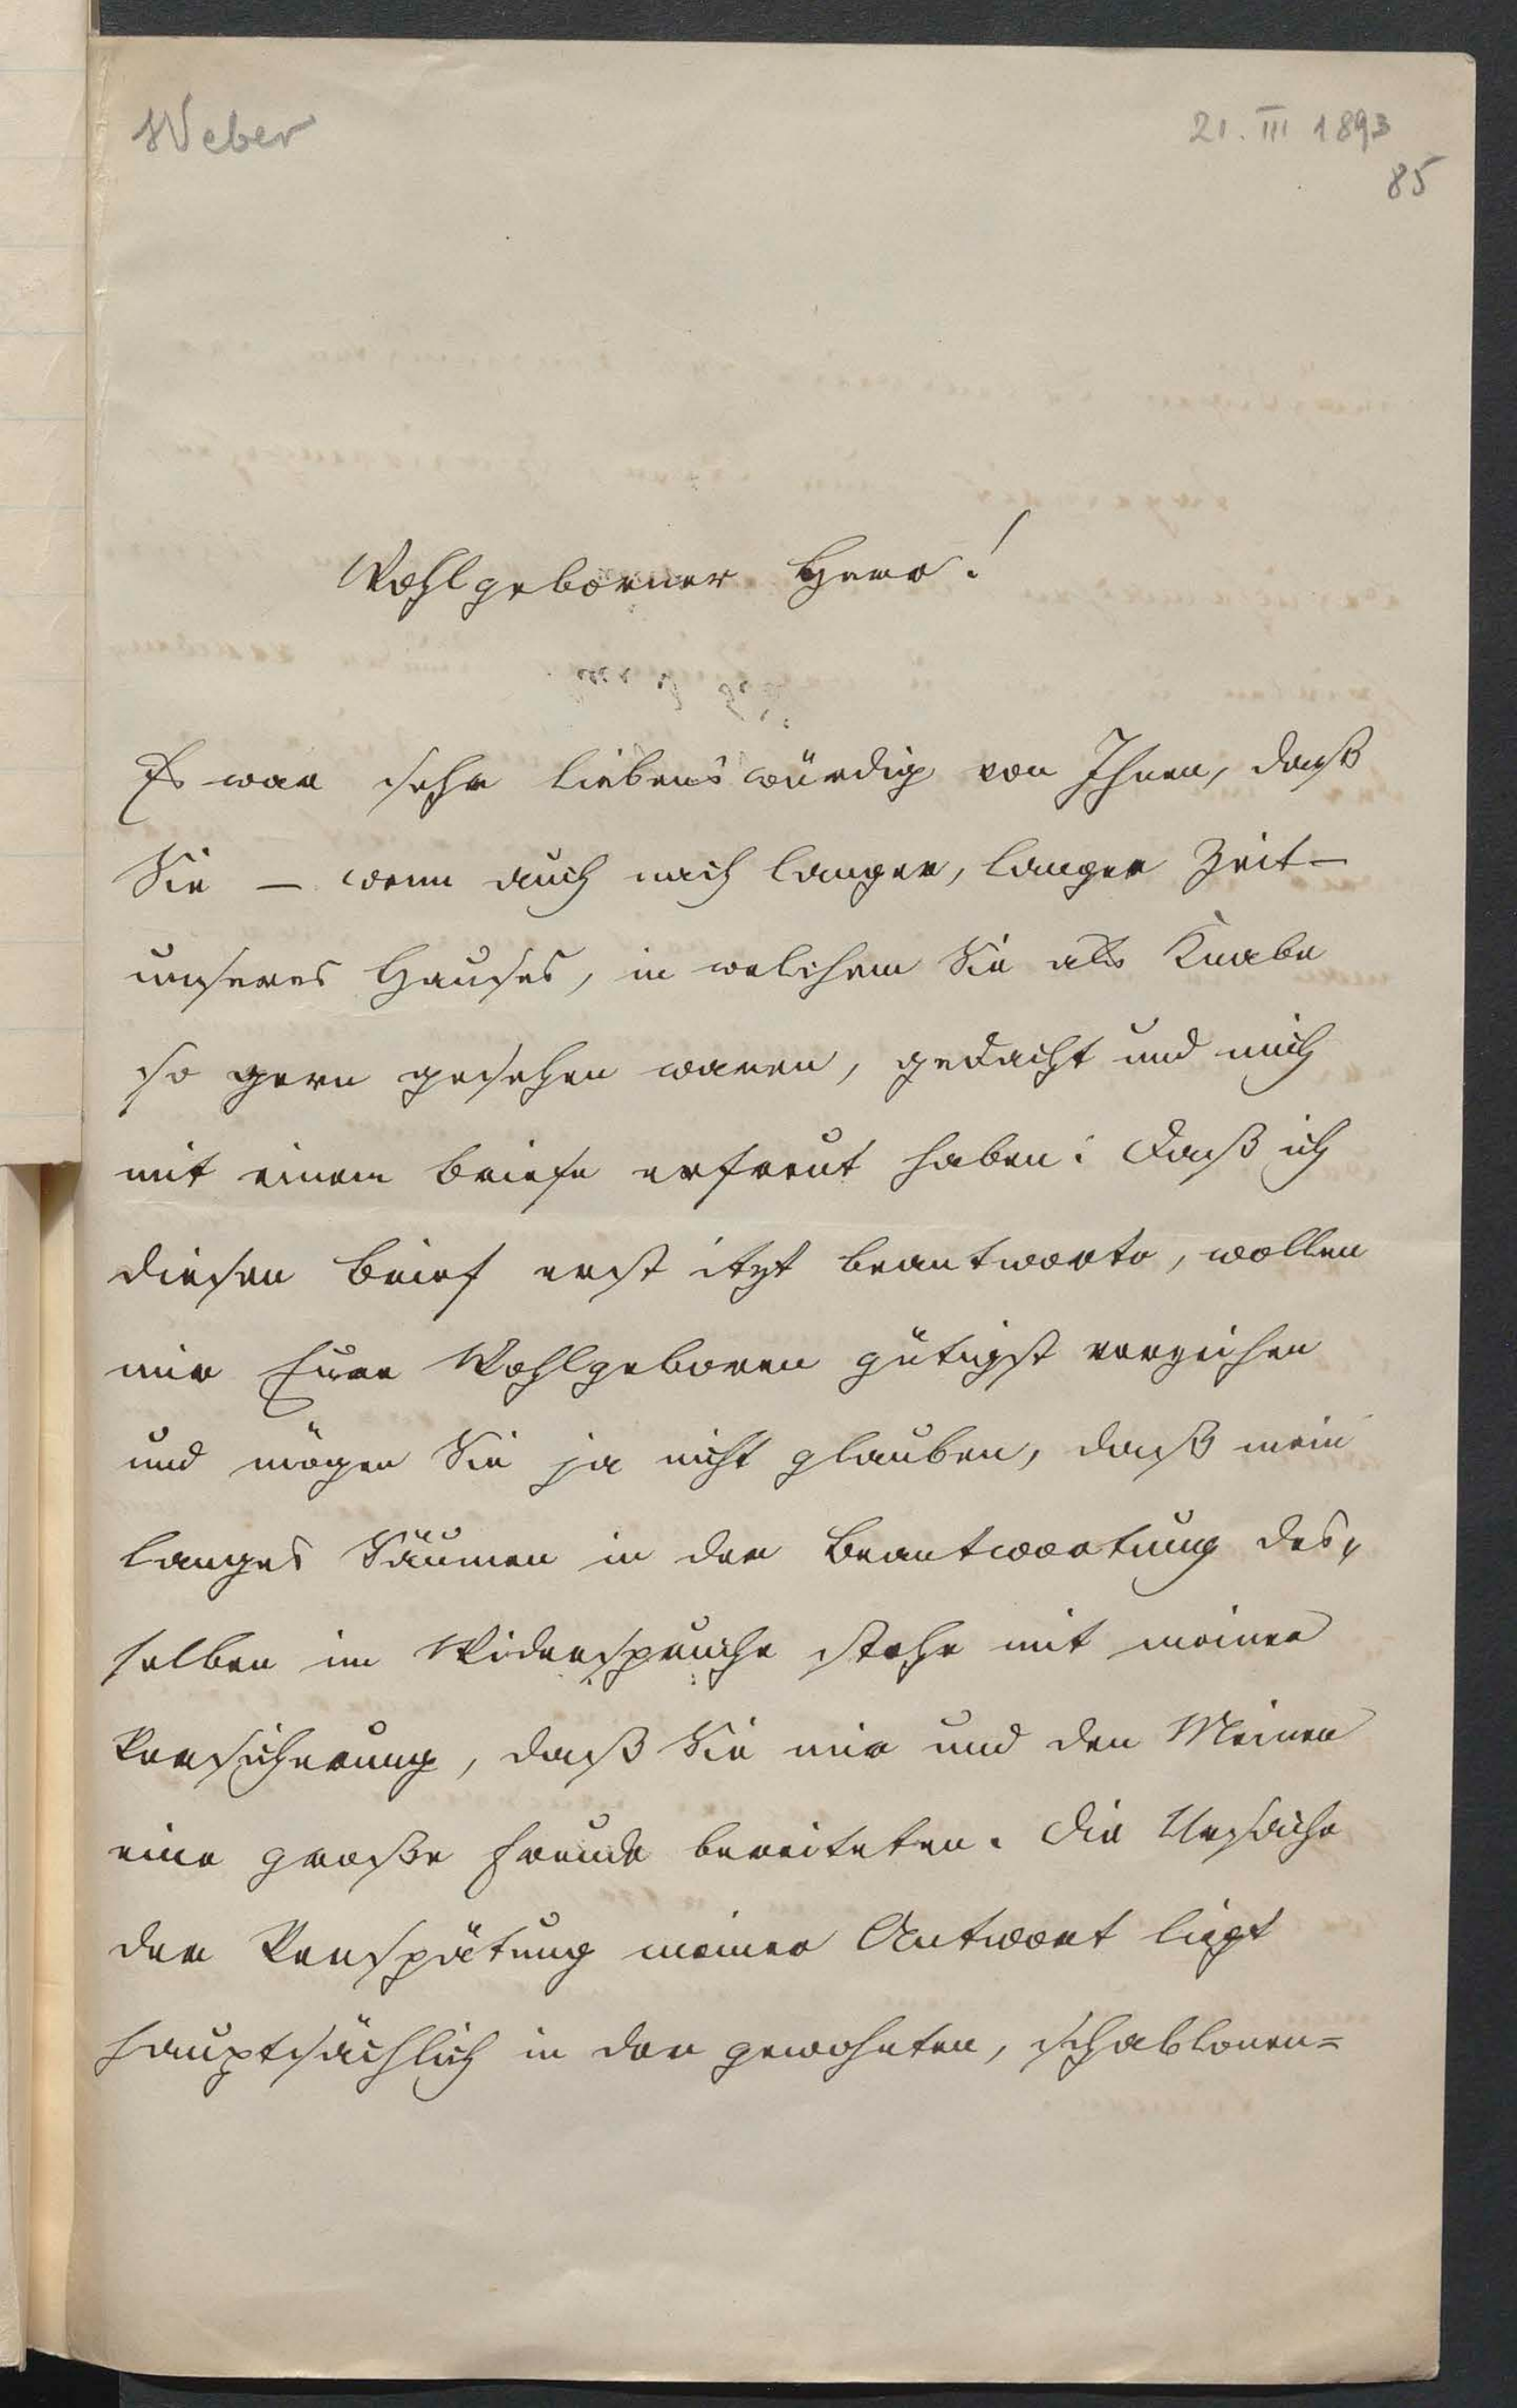 Weber
21. III 1893
85
Wohlgeborner Herr!
Es war sehr liebenswürdig von Ihnen, daß
Sie – wenn auch nach langer, langer Zeit –
unseres Hauses, in welchem Sie als Knabe
so gern gesehen waren, gedacht und mich
mit einem Briefe erfreut haben: Daß ich
diesen Brief erst itzt beantworte, wollen
mir Euer Wohlgeboren gütigst verzeihen
und mögen Sie ja nicht glauben, daß mein
langes Säumen in der Beantwortung des„
selben im Widerspruche stehe mit meiner
Versicherung, daß Sie mir und den Meinen
eine große Freude bereiteten. Die Ursache
der Verspätung meiner Antwort liegt
hauptsächlich in der gewohnten, schablonen=